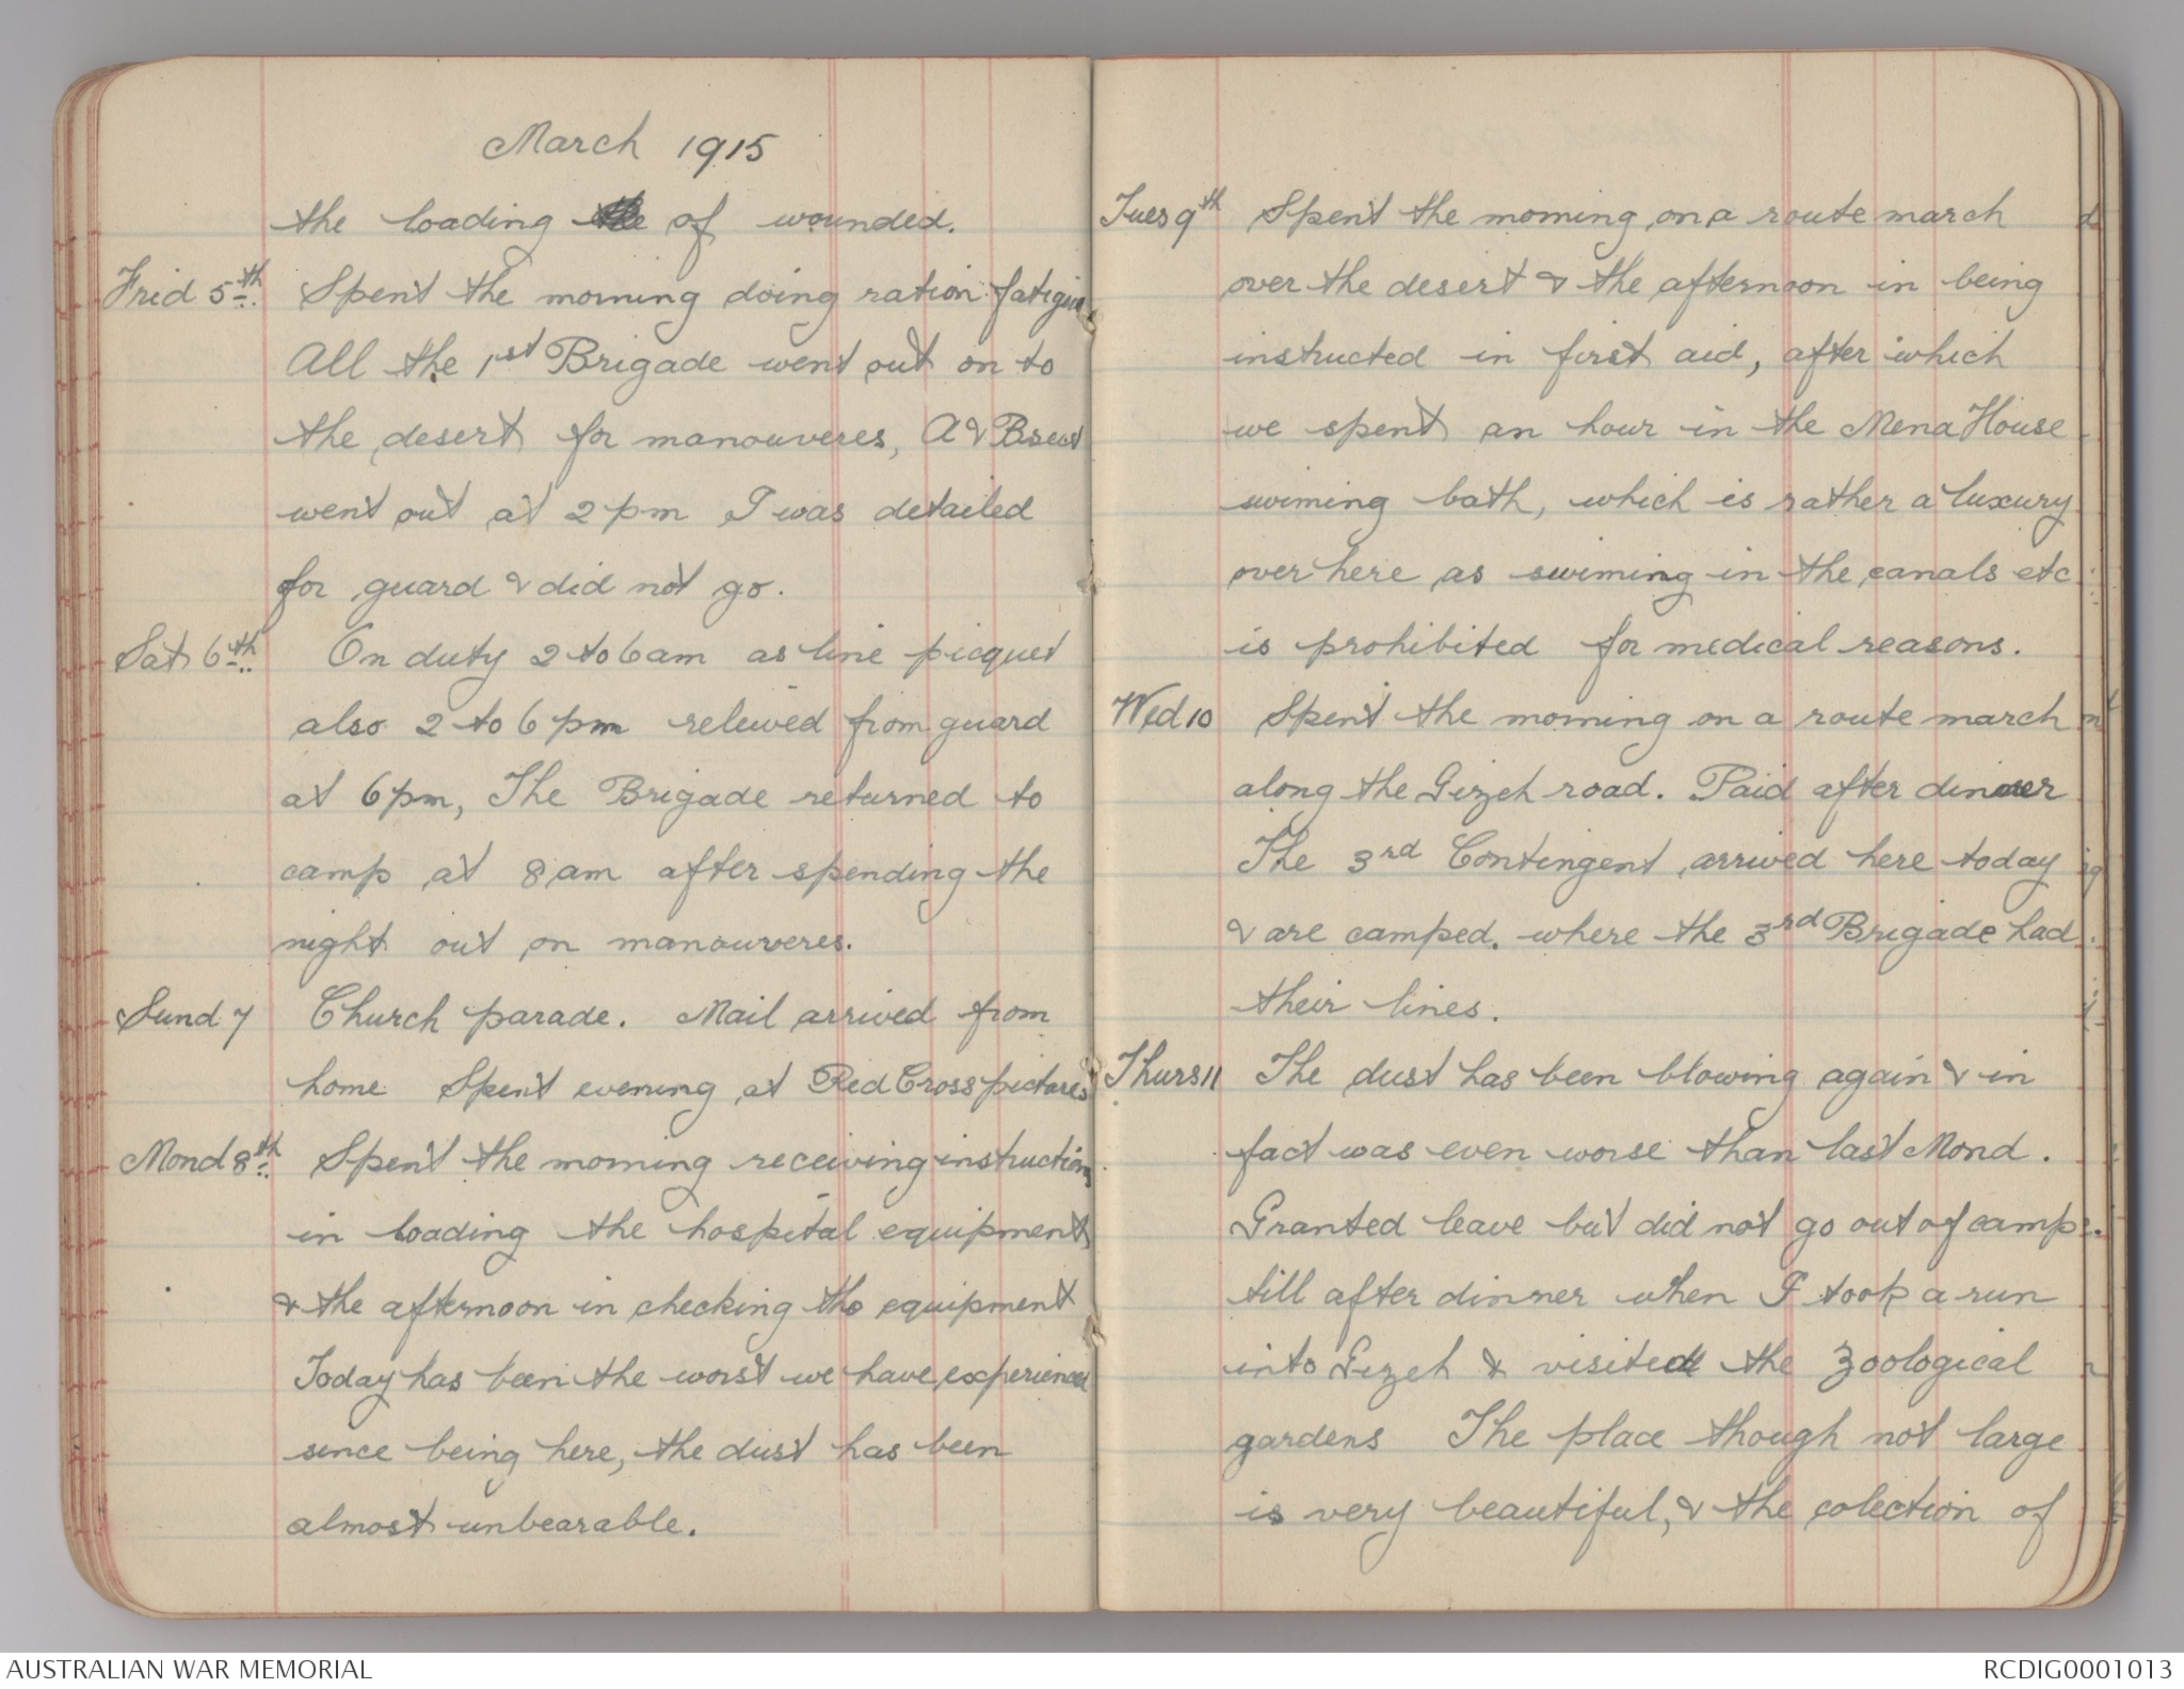 March 1915
the loading the of wounded.
Frid 5th Spent the morning doing ration fatigue
All the 1st Brigade went out on to
the desert for manouveres, A & B sect
went out at 2 pm I was detailed
for guard & did not go.
Sat 6th On duty 2 to 6 am as line picquet
also 2 to 6 pm relewed from guard
at 6 pm, The Brigade returned to
camp at 8 am after spending the
night out on manouveres.
Sund 7 Church parade. Mail arrived from
home Spent evening at Red Cross pictures
Mond 8th Spent the morning receiving instruction
in loading the hospital equipment
& the afternoon in checking the equipment
Today has been the worst we have experienced
since being here, the dust has been
almost unbearable.
Tues 9th Spent the morning on a route march
over the desert & the afternoon in being
instructed in first aid, after which
we spent an hour in the Mena House
swiming bath, which is rather a luxury
over here as swiming in the canals etc
is prohibited for medical reasons.
Wed 10 Spent the morning on a route march
along the Gizeh road. Paid after dinner
The 3rd Contingent arrived here today
& are camped. where the 3rd Brigade had
their lines.
Thurs 11 The dust has been blowing again & in
fact was even worse than last Mond.
Granted leave but did not go out of camp
till after dinner when I took a run
into Gizeh & visited the Zoological
gardens The place though not large
is very beautiful, & the colection of
AUSTRALIAN WAR MEMORIAL
RCDIG0001013